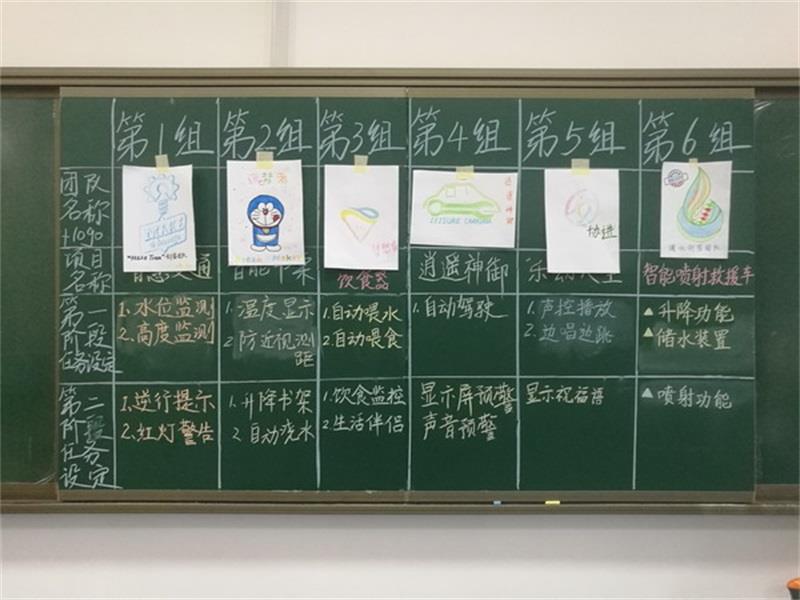 第1组 第2组 第3组 第4组 第5组 第6组
团队
名称
+10%
LEISURE
协进
项目
名称
饮食器
逍遥神御
智能喷射救援车
第一
阶段
任务设定
1.水位监测
2.高度监测
1.温度显示
2.防近视测
距
1.自动喂水
2.自动喂食
1.自动驾驶
1.声控播放
2.边唱边跳
▲升降功能
▲储水装置
第二
阶段
任务
设定
1.逆行提示
2.红灯警告
1.升降书架
2.自动浇水
1.饮食监控
2.生活伴侣
显示屏预警
声音预警
显示祝福语
▲喷射功能